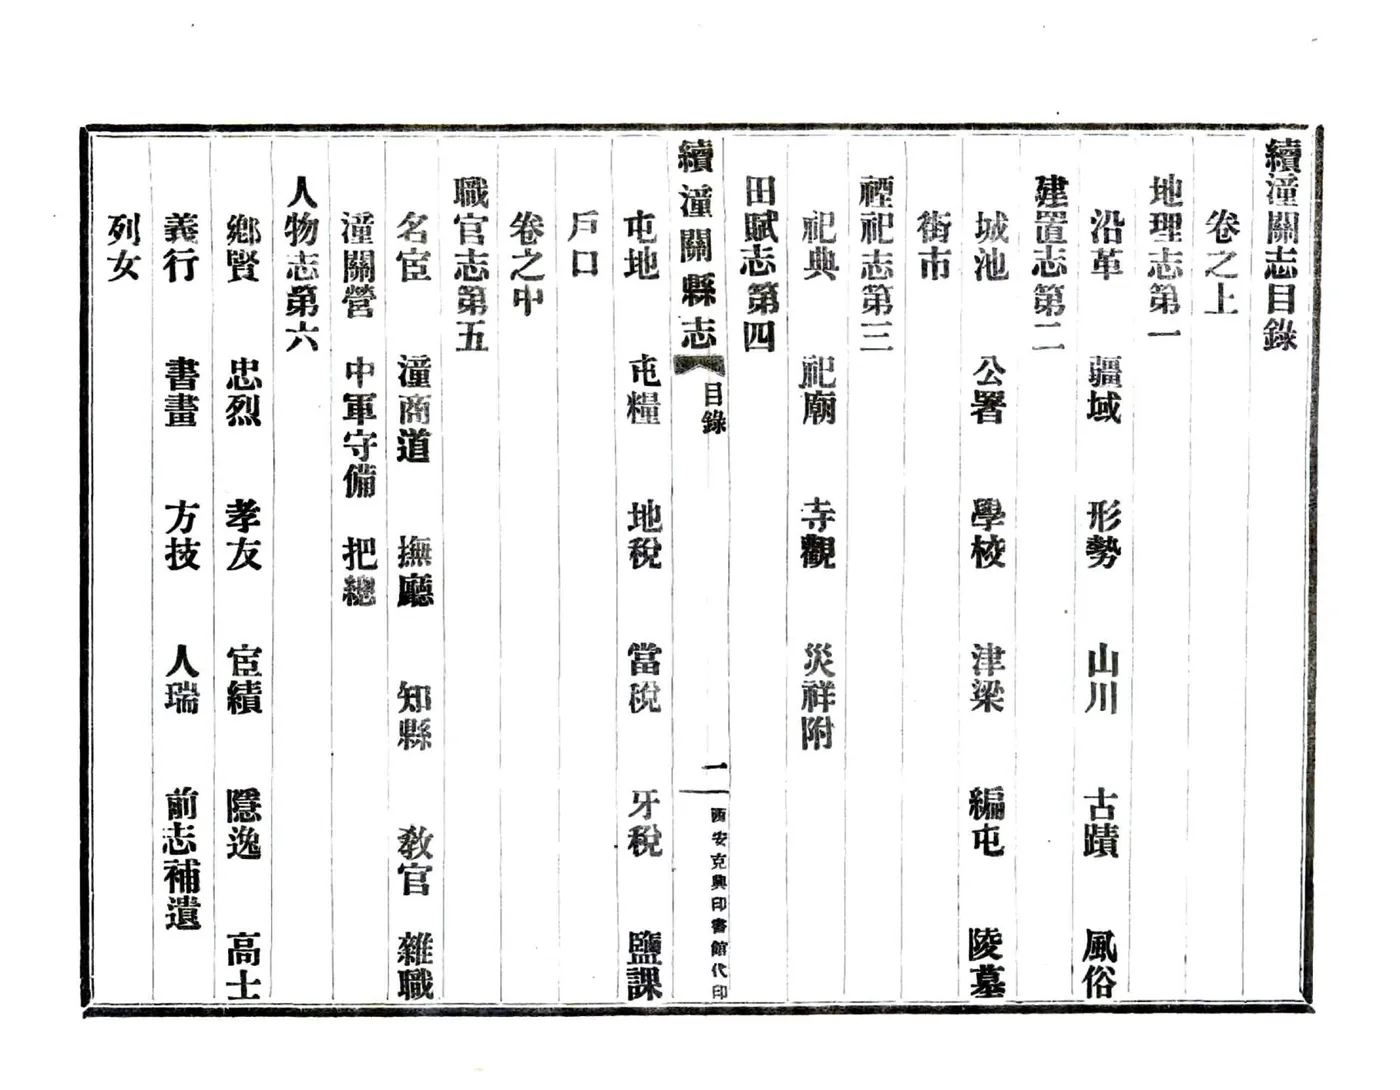 續潼關志目錄
卷之上
地理志第一
沿革 疆域 形勢 山川 古蹟 風俗
建置志第二
城池 公署 學校 津梁 編屯 陵墓
街市
禋祀志第三
祀典 祀廟 寺觀 災祥附
田賦志第四
續潼關縣志 目錄 一 西安克興印書館代印
屯地 屯糧 地稅 當稅 牙稅 鹽課
戶口
卷之中
職官志第五
名宦 潼商道 撫廳 知縣 教官 雜職
潼關營 中軍守備 把總
人物志第六
鄉賢 忠烈 孝友 宦績 隱逸 高士
義行 書畫 方技 人瑞 前志補遺
列女